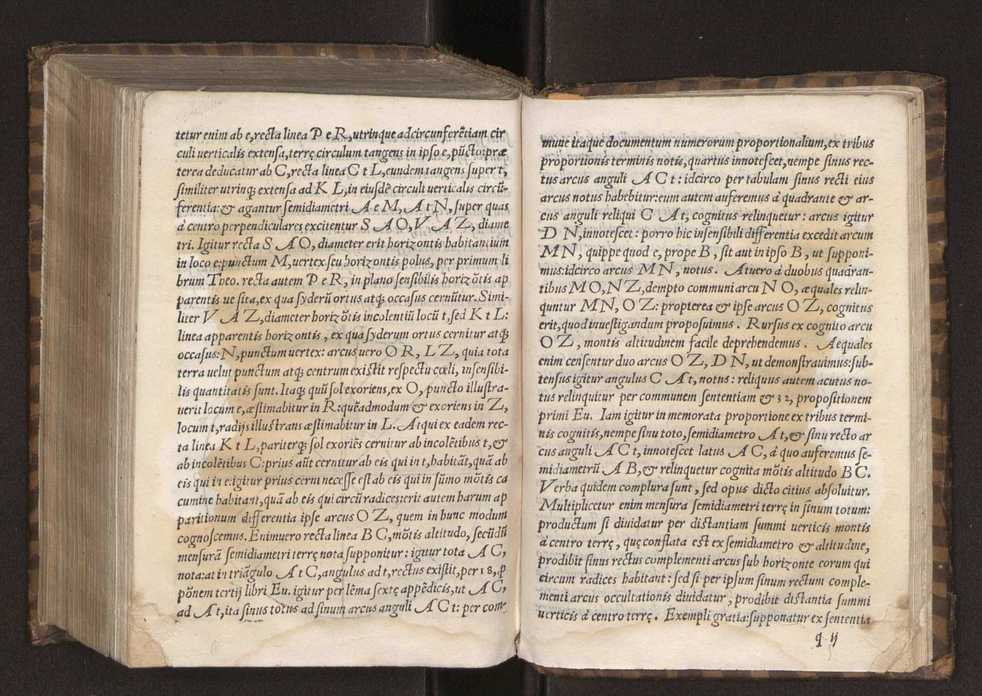 tetur enim ab e, recta linea P e R, utrinque ad circunferẽtiam cir
culi uerticalis extensa, terrę circulum tangens in ipso e, pũcto: præ
terea deducatur ab C, recta linea C t L, eundem tangens super t,
similiter utrinq; extensa ad K L, in eiusdẽ circuli uerticalis circũ-
ferentia: & agantur semidiametri A e M, A t N, super quas
à centro perpendiculares excitentur S A O, V A Z, diame
tri. Igitur recta S A O, diameter erit horizontis habitantium
in loco e: punctum M, uertex seu horizontis polus, per primum li
brum Theo. recta autem P e R, in plano sensibilis horizõtis ap
parentis ue sita, ex qua syderũ ortus atq; occasus cernũtur. Simi-
liter V A Z, diameter horizõtis incolentiũ locũ t, sed K t L:
linea apparentis horizontis, ex qua syderum ortus cernitur atq;
occasus: N, punctum uertex: arcus uero O R, L Z, quia tota
terra uelut punctum atq; centrum existit respectu cœli, insensibi-
lis quantitatis sunt. Itaq; quũ sol exoriens, ex O, puncto illustra-
uerit locum e, æstimabitur in R: quẽadmodum & exoriens in Z,
locum t, radijs illustrans æstimabitur in L. At qui ex eadem rec-
ta linea K t L, pariterq; sol exoriẽs cernitur ab incolẽtibus t, &
ab incolẽtibus C: prius aũt cernitur ab eis qui in t, habitãt, quã ab
eis qui in e: igitur prius cerni necesse est ab eis qui in sũmo mõtis ca
cumine habitant, quã ab eis qui circũ radices: erit autem harum ap
paritionum differentia ipse arcus O Z, quem in hunc modum
cognoscemus. Enimuero recta linea B C, mõtis altitudo, secũdũ
mensurã semidiametri terrę nota supponitur: igitur tota A C,
nota: at in triãgulo A t C, angulus ad t, rectus existit, per 18, p
põnem tertij libri Eu. igitur per lẽma sextę appẽdicis, ut A C,
ad A t, ita sinus totus ad sinum arcus anguli A C t: per com-
mune itaque documentum numerorum proportionalium, ex tribus
proportionis terminis notis, quartus innotescet, nempe sinus rec-
tus arcus anguli A C t: idcirco per tabulam sinus recti eius
arcus notus habebitur: eum autem auferemus à quadrante & ar-
cus anguli reliqui C A t, cognitus relinquetur: arcus igitur
D N, innotescet: porro hic insensibili differentia excedit arcum
M N, quippe quod e, prope B, sit aut in ipso B, ut supponi-
mus: idcirco arcus M N, notus. At uero à duobus quadran-
tibus M O, N Z, dempto communi arcu N O, æquales relin-
quntur M N, O Z: propterea & ipse arcus O Z, cognitus
erit, quod inuestigandum proposuimus. Rursus ex cognito arcu
O Z, montis altitudinem facile deprehendemus. Aequales
enim censentur duo arcus O Z, D N, ut demonstrauimus: sub-
tensus igitur angulus C A t, notus: reliquus autem acutus no-
tus relinquitur per communem sententiam & 32, propositionem
primi Eu. Iam igitur in memorata proportione ex tribus termi-
nis cognitis, nempe sinu toto, semidiametro A t, & sinu recto ar
cus anguli A C t, innotescet latus A C, à quo auferemus se-
midiametrũ A B, & relinquetur cognita mõtis altitudo B C.
Verba quidem complura sunt, sed opus dicto citius absoluitur.
Multiplicetur enim mensura semidiametri terrę in sinum totum:
productum si diuidatur per distantiam summi uerticis montis
à centro terrę, quę conflata est ex semidiametro & altitudine,
prodibit sinus rectus complementi arcus sub horizonte eorum qui
circum radices habitant: sed si per ipsum sinum rectum comple-
menti arcus occultationis diuidatur, prodibit distantia summi
uerticis à centro terrę. Exempli gratia: supponatur ex sententia
q ij